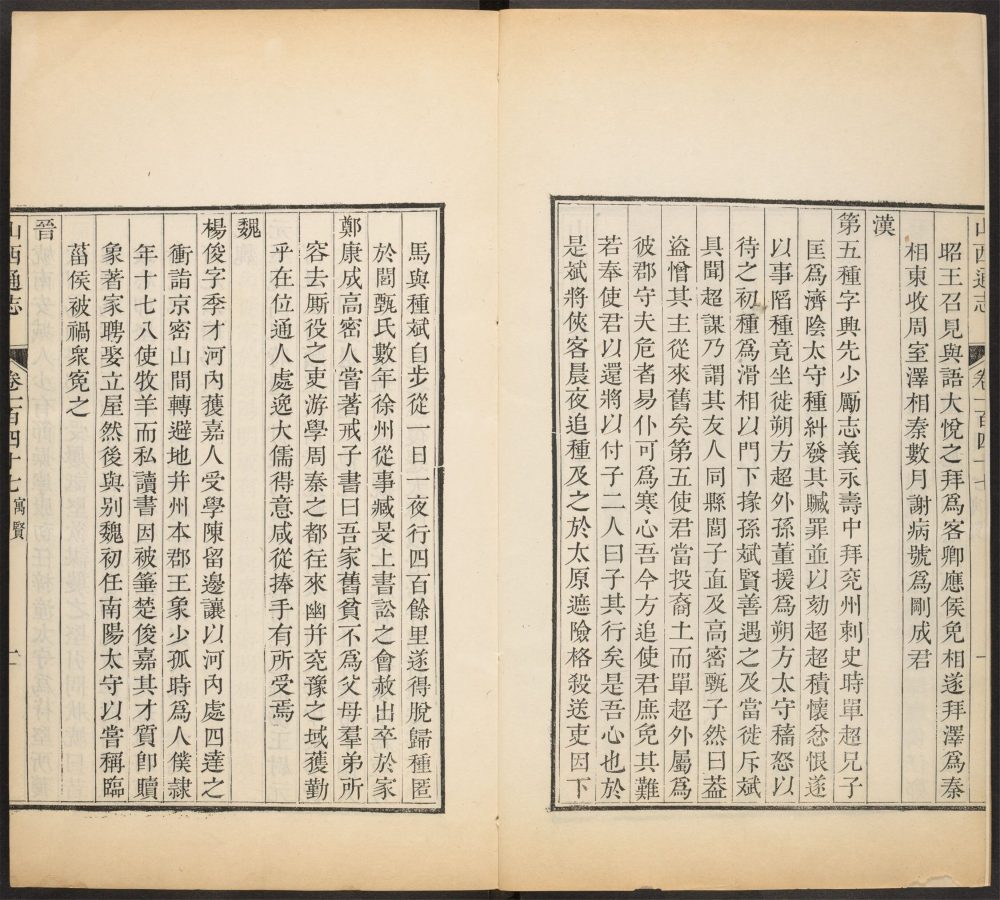 山西通志 卷一百四十七 一
昭王召見與語大悅之拜爲客卿應侯免相遂拜澤爲秦
相東收周室澤相秦數月謝病號爲剛成君
漢
第五種字興先少厲志義永壽中拜兖州刺史時單超兄子
匡爲濟陰太守種糾發其贓罪並以劾超超積懷忿恨遂
以事陷種竟坐徙朔方超外孫董援爲朔方太守稸怒以
待之初種爲滑相以門下掾孫斌賢善遇之及當徙斥斌
具聞超謀乃謂其友人同縣閭子直及高密甄子然曰葢
盜憎其主從來舊矣第五使君當投裔土而單超外屬爲
彼郡守夫危者易仆可爲寒心吾今方追使君庶免其難
若奉使君以還將以付子二人曰子其行矣是吾心也於
是斌將俠客晨夜追種及之於太原遮險格殺送吏因下
馬與種斌自步從一日一夜行四百餘里遂得脫歸種匿
於閭甄氏數年徐州從事臧旻上書訟之會赦出卒於家
鄭康成高密人嘗著戒子書曰吾家舊貧不爲父母羣弟所
容去厮役之吏游學周秦之都往來幽并兖豫之域獲勤
乎在位通人處逸大儒得意咸從捧手有所受焉
魏
楊俊字季才河內獲嘉人受學陳留邊讓以河內處四達之
衝詣京密山間轉避地并州本郡王象少孤時爲人僕隷
年十七八使牧羊而私讀書因被箠楚俊嘉其才質卽贖
象著家聘娶立屋然後與別魏初任南陽太守以嘗稱臨
葘侯被禍衆寃之
晉
山西通志 卷一百四十七 寓賢 二